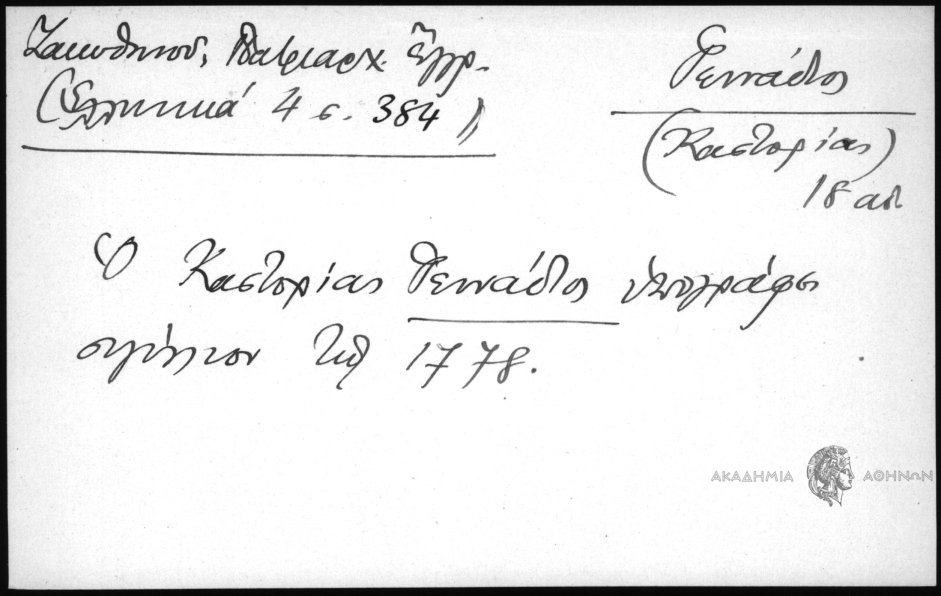 Ζακυθηνού, Πατριαρχ. Ἔγγρ.
(Ἑλληνικά 4 σ. 384)
Γεννάδιος
(Καστορίας)
18 αι.
Ὁ Καστορίας Γεννάδιος ὑπογράφει
σιγίλλιον τοῦ 1778.
ΑΚΑΔΗΜΙΑ ΑΘΗΝΩΝ